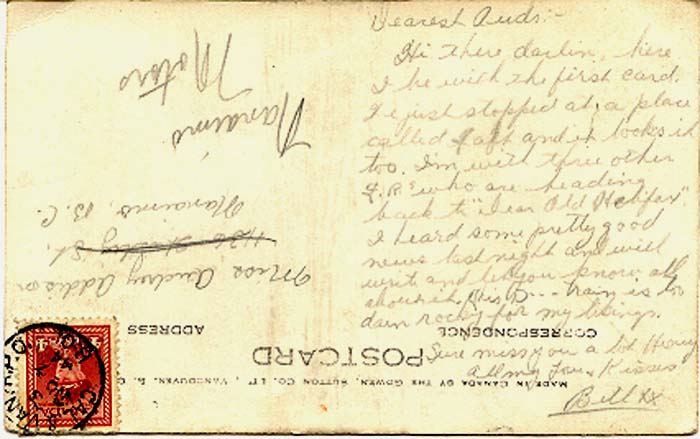 Dearest Aud:-
Hi there darlin, here
I be with the first card.
I've just stopped at a place
called Taft and it looks it
too. I'm with three other
who are heading
back to "dear Old Halifax"
I heard some pretty good
news last night and will
write and let you know all
about it. This D--- train is too
darn rocky for my likings.
Sure miss you a lot Honey
All my Love & Kisses
Bill xx
Nanaimo
Motors
Miss Audrey Addison
St.
Nanaimo, B.C.
CORRESPONDENCE
ADDRESS
POSTCARD
MADE IN CANADA BY THE GOWEN, SUTTON CO. LTD., VANCOUVER, B. C.